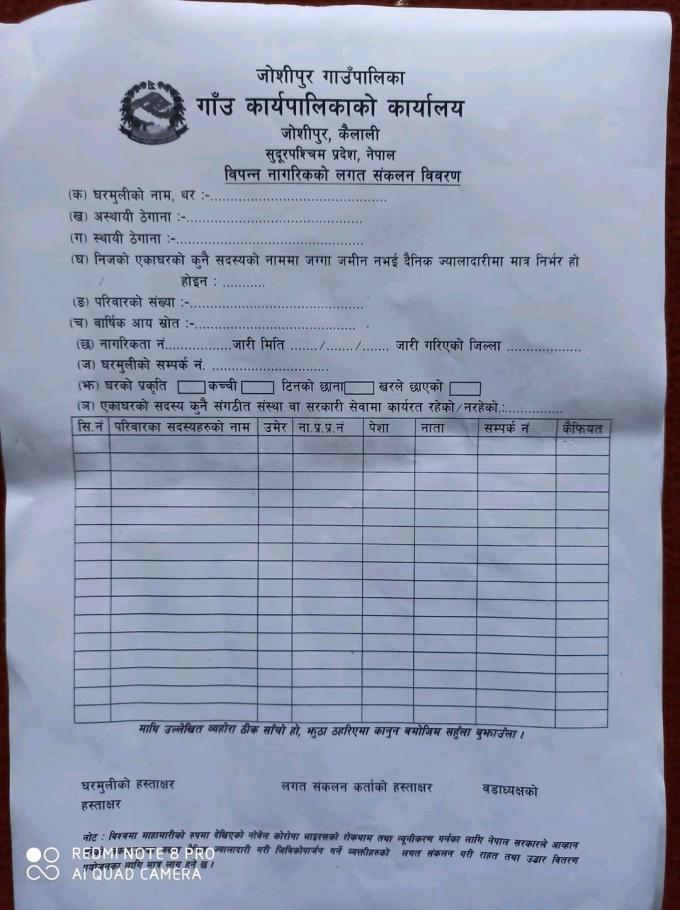 जोशीपुर गाउँपालिका
गाँउ कार्यपालिकाको कार्यालय
जोशीपुर, कैलाली
सुदूरपश्चिम प्रदेश, नेपाल
विपन्न नागरिकको लगत संकलन विवरण
(क) घरमुलीको नाम, थर :-............................................
(ख) अस्थायी ठेगाना :-............................................
(ग) स्थायी ठेगाना :-..............................................
(घ) निजको एकाघरको कुनै सदस्यको नाममा जग्गा जमीन नभई दैनिक ज्यालादारीमा मात्र निर्भर हो
होइन : ...........
(ङ) परिवारको संख्या :-...........................................
(च) वार्षिक आय स्रोत :-........................................ .
(छ) नागरिकता नं.................जारी मिति ......./......./....... जारी गरिएको जिल्ला ..................
(ज) घरमुलीको सम्पर्क नं. .............................
(झ) घरको प्रकृति कच्ची टिनको छाना खरले छाएको
(ञ) एकाघरको सदस्य कुनै संगठीत संस्था वा सरकारी सेवामा कार्यरत रहेको/नरहेको.:..............
सि.नं परिवारका सदस्यहरुको नाम उमेर ना.प्र.प्र.नं पेशा नाता सम्पर्क नं कैफियत
माथि उल्लेखित व्यहोरा ठीक साँचो हो, झुठा ठहरिएमा कानुन बमोजिम सहुँला बुझाउँला ।
घरमुलीको हस्ताक्षर लगत संकलन कर्ताको हस्ताक्षर वडाध्यक्षको
हस्ताक्षर
नोट : विश्वमा माहामारीको रुपमा देखिएको नोवेल कोरोना भाइरसको रोकथाम तथा न्यूनीकरण गर्नका लागि नेपाल सरकारले आव्हान
ज्यालादारी गरी जिविकोपार्जन गर्ने व्यक्तीहरुको लगत संकलन गरी राहत तथा उद्धार वितरण
प्रयोजनका लागि मात्र लागु हुने छ ।
REDMI NOTE 8 PRO
AI QUAD CAMERA